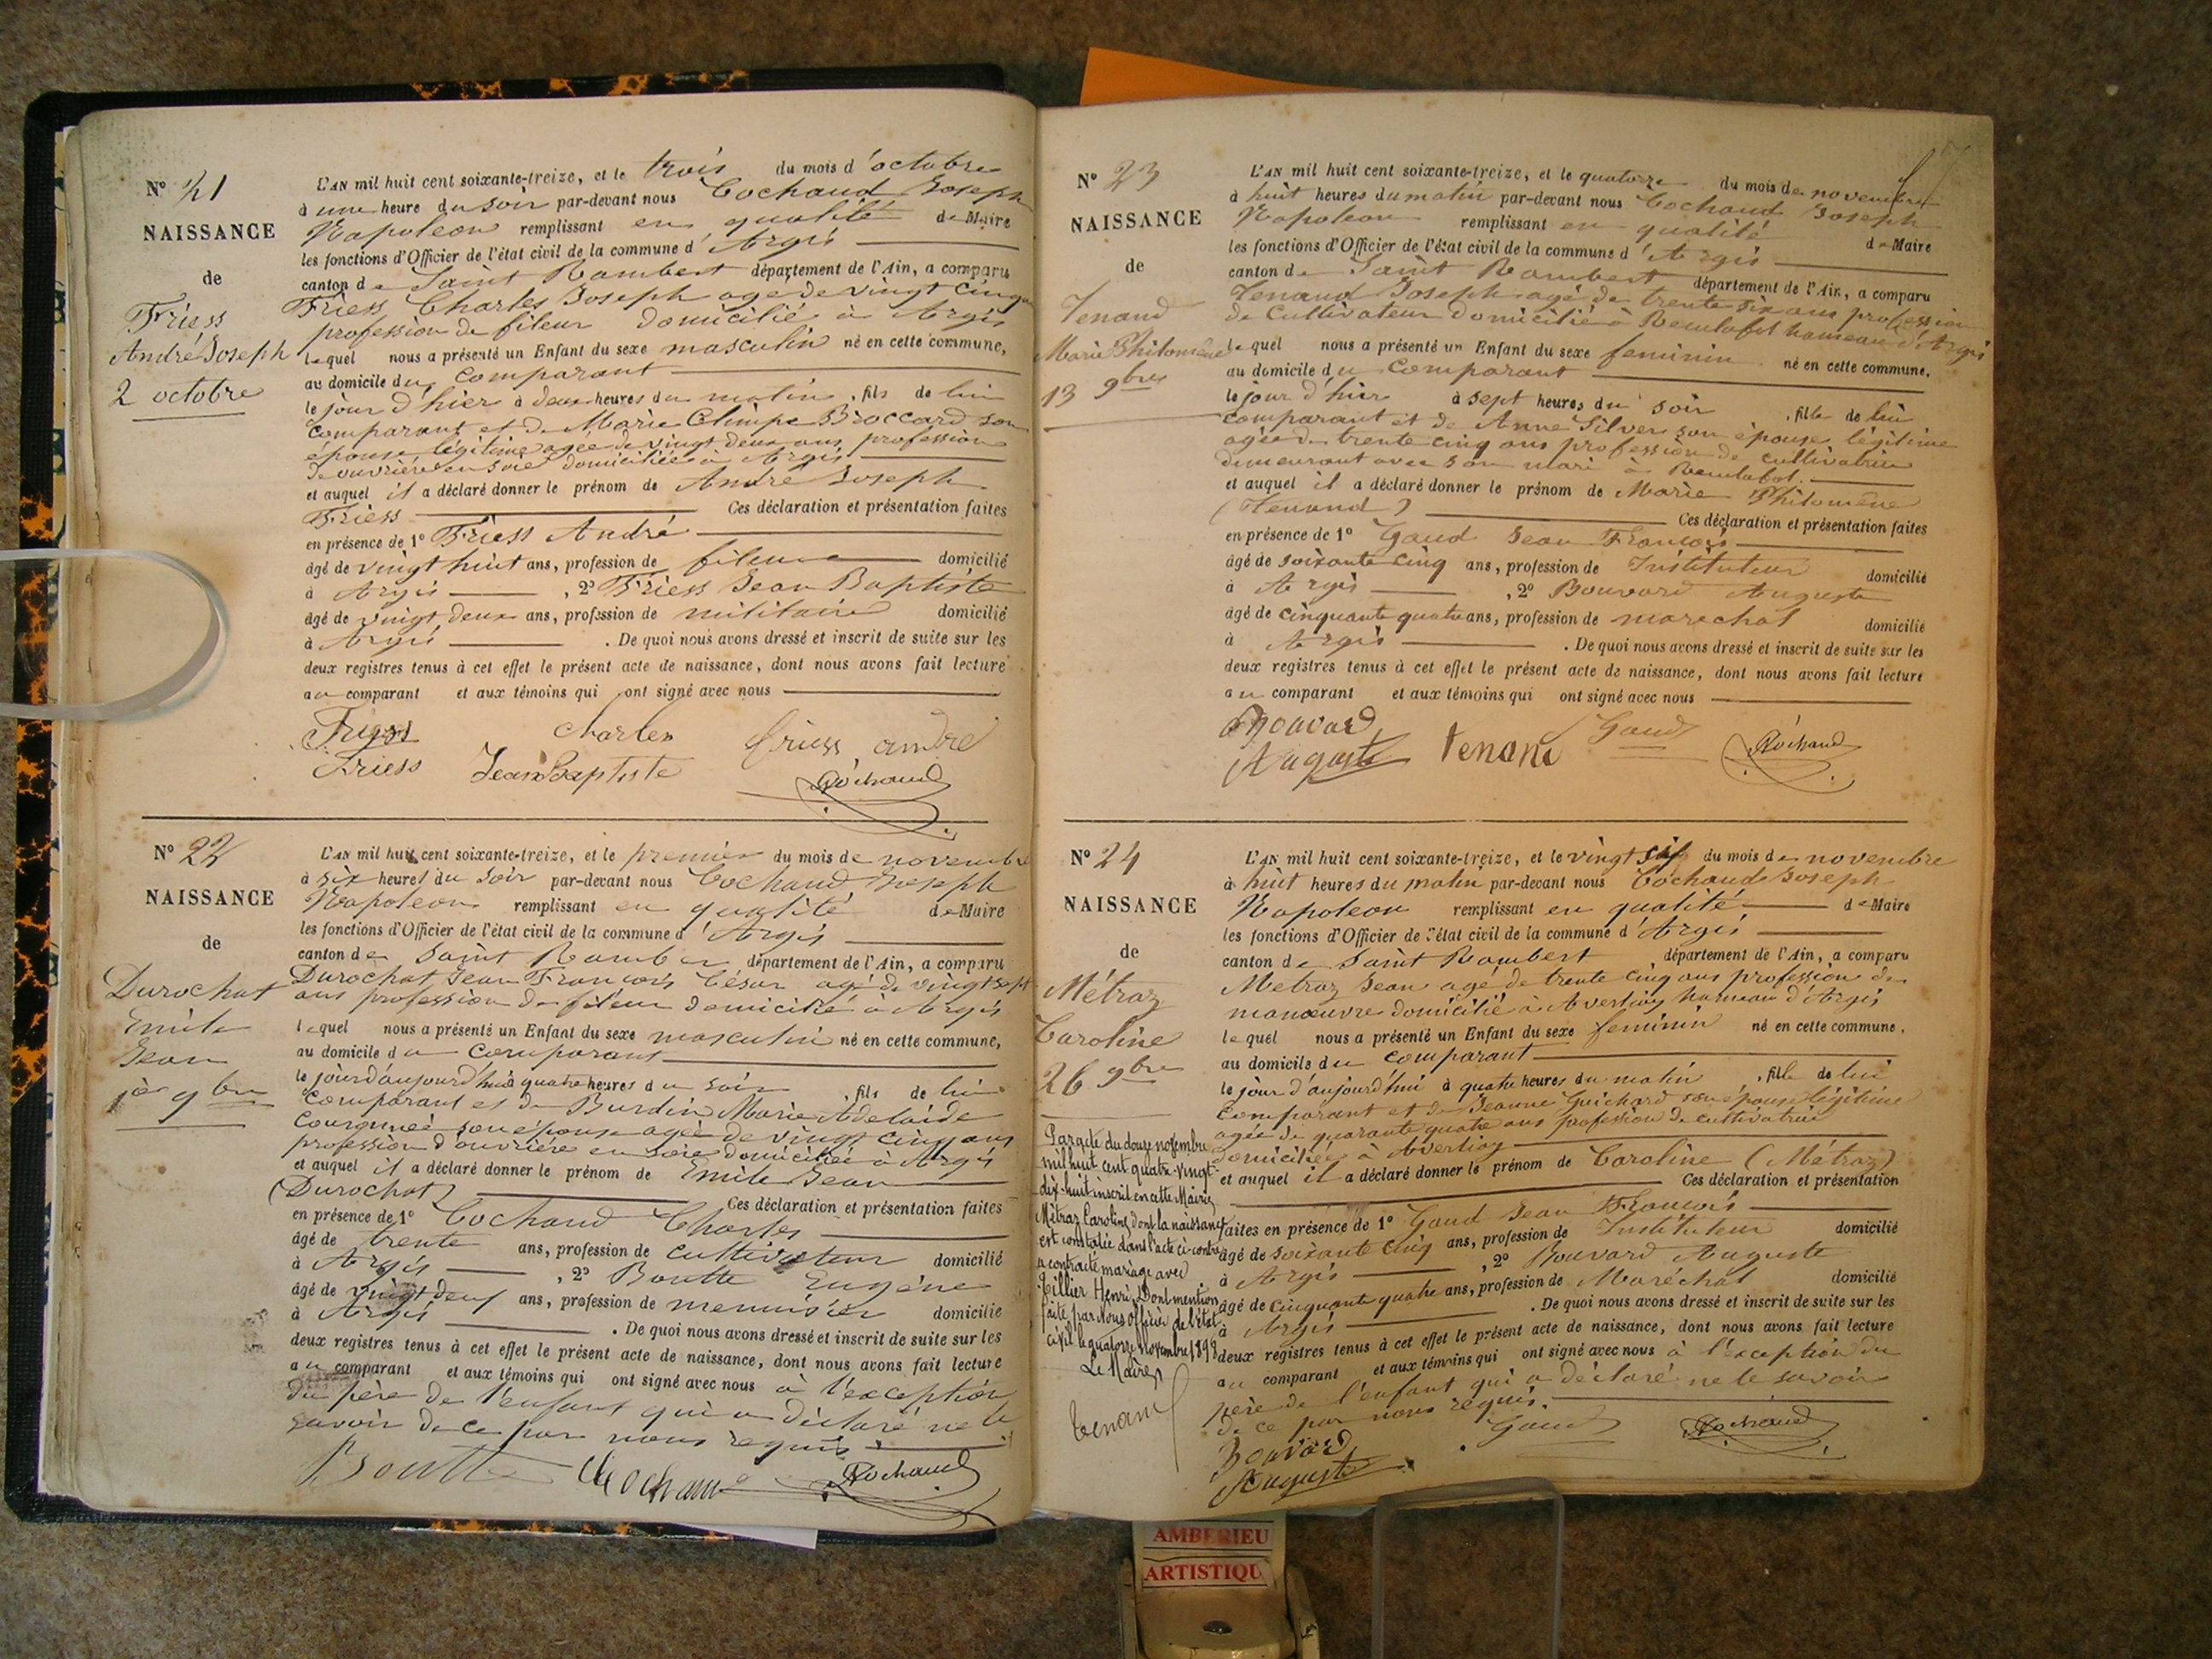 N° 21
NAISSANCE
de
Friess
André Joseph
2 octobre
L'AN mil huit cent soixante-treize, et le trois du mois d'octobre
à une heure du soir par-devant nous Cochaud Joseph
Napoleon remplissant en qualité de Maire
les fonctions d'Officier de l'état civil de la commune d'Argis
canton de Saint Rambert département de l'Ain, a comparu
Friess Charles Joseph agé de vingt cinq
profession de fileur domicilié à Argis
lequel nous a présenté un Enfant du sexe masculin né en cette commune,
au domicile du comparant
le jour d'hier à deux heures du matin, fils de lui
comparant et de Marie Olimpe Broccard son
épouse légitime agée de vingt deux ans profession
de ouvrière en soie domiciliée à Argis
et auquel il a déclaré donner le prénom de André Joseph
Friess Ces déclaration et présentation faites
en présence de 1° Friess André
âgé de vingt huit ans, profession de fileur domicilié
à Argis, 2° Friess Jean Baptiste
âgé de vingt deux ans, profession de militaire domicilié
à Argis. De quoi nous avons dressé et inscrit de suite sur les
deux registres tenus à cet effet le présent acte de naissance, dont nous avons fait lecture
au comparant et aux témoins qui ont signé avec nous
Friess Charles friess andré
Friess Jean Baptiste Cochaud
N° 22
NAISSANCE
de
Durochat
Emile
Jean
1er 9bre
L'AN mil huit cent soixante-treize, et le premier du mois de novembre
à six heures du soir par-devant nous Cochaud Joseph
Napoleon remplissant en qualité de Maire
les fonctions d'Officier de l'état civil de la commune d'Argis
canton de Saint Rambert département de l'Ain, a comparu
Durochat Jean François César agé de vingt sept
ans profession de fileur domicilié à Argis
lequel nous a présenté un Enfant du sexe masculin né en cette commune,
au domicile du comparant
le jour d'aujourd'hui à quatre heures du soir, fils de lui
comparant et de Burdin Marie Adelaide
son épouse agée de vingt cinq ans
profession d'ouvrière en soie domiciliée à Argis
et auquel il a déclaré donner le prénom de Emile Jean
(Durochat) Ces déclaration et présentation faites
en présence de 1° Cochaud Charles
âgé de trente ans, profession de cultivateur domicilié
à Argis, 2° Boutte Eugène
âgé de vingt deux ans, profession de menuisier domicilié
à Argis. De quoi nous avons dressé et inscrit de suite sur les
deux registres tenus à cet effet le présent acte de naissance, dont nous avons fait lecture
au comparant et aux témoins qui ont signé avec nous à l'exception
du père de l'enfant qui a déclaré ne le
savoir de ce par nous requis
Boutte Cochaud Cochaud
N° 23
NAISSANCE
de
Tenand
Marie Philomène
13 9bre
L'AN mil huit cent soixante-treize, et le quatorze du mois de novembre
à huit heures du matin par-devant nous Cochaud Joseph
Napoleon remplissant en qualité de Maire
les fonctions d'Officier de l'état civil de la commune d'Argis
canton de Saint Rambert département de l'Ain, a comparu
Tenand Joseph agé de trente six ans profession
de Cultivateur domicilié à Reculafol hameau d'Argis
lequel nous a présenté un Enfant du sexe feminin né en cette commune,
au domicile du comparant
le jour d'hier à sept heures du soir, fille de lui
comparant et de Anne Silven son épouse légitime
agée de trente cinq ans profession de cultivatrice
demeurant avec son mari à Reculafol.
et auquel il a déclaré donner le prénom de Marie Philomène
(Tenand) Ces déclaration et présentation faites
en présence de 1° Gaud Jean François
âgé de soixante cinq ans, profession de Instituteur domicilié
à Argis, 2° Bouvard Auguste
âgé de cinquante quatre ans, profession de marechal domicilié
à Argis. De quoi nous avons dressé et inscrit de suite sur les
deux registres tenus à cet effet le présent acte de naissance, dont nous avons fait lecture
au comparant et aux témoins qui ont signé avec nous
Bouvard Tenand Gaud Cochaud
Auguste
N° 24
NAISSANCE
de
Métraz
Caroline
26 9bre
Par acte du douze novembre
mil huit cent quatre-vingt-
dix-huit inscrit en cette Mairie
Métraz Caroline dont la naissance
est constatée dans l'acte ci-contre
a contracté mariage avec
Tillier Henri, Dont mention
faite par Nous officier de l'état
civil le quatorze Novembre 1898
Le Maire,
Tenand
L'AN mil huit cent soixante-treize, et le vingt six du mois de novembre
à huit heures du matin par-devant nous Cochaud Joseph
Napoleon remplissant en qualité de Maire
les fonctions d'Officier de l'état civil de la commune d'Argis
canton de Saint Rambert département de l'Ain, a comparu
Metraz Jean agé de trente cinq ans profession de
manœuvre domicilié à Averliaz hameau d'Argis
lequel nous a présenté un Enfant du sexe feminin né en cette commune,
au domicile du comparant
le jour d'aujourd'hui à quatre heures du matin, fille de lui
comparant et de Jeanne Guichard son épouse légitime
agée de quarante quatre ans profession de cultivatrice
domiciliée à Averliaz
et auquel il a déclaré donner le prénom de Caroline (Métraz)
Ces déclaration et présentation
faites en présence de 1° Gaud Jean François
âgé de soixante cinq ans, profession de Instituteur domicilié
à Argis, 2° Bouvard Auguste
âgé de cinquante quatre ans, profession de Maréchal domicilié
à Argis. De quoi nous avons dressé et inscrit de suite sur les
deux registres tenus à cet effet le présent acte de naissance, dont nous avons fait lecture
au comparant et aux témoins qui ont signé avec nous à l'exception du
père de l'enfant qui a déclaré ne le savoir
de ce par nous requis.
Bouvard Gaud Cochaud
Auguste
AMBERIEU
ARTISTIQU